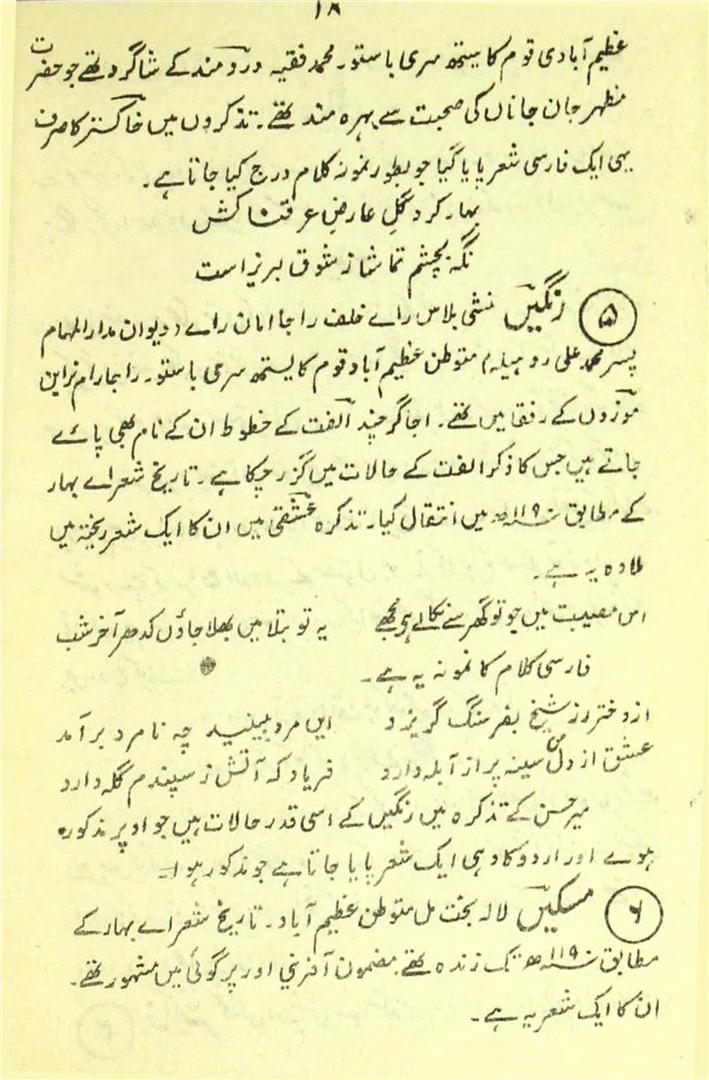 ۱۸
عظیم آبادی قوم کایستھ سری باستو۔ محمد فقیہ دردمند کے شاگرد تھے جو حضرت
مظہر جان جاناں کی صحبت سے بہرہ مند تھے۔ تذکروں میں خاکستر کا صرف
یہی ایک فارسی شعر پایا گیا جو بطور نمونہ کلام درج کیا جاتا ہے۔
بہار کرد گل عارضِ عرقناکش
نگہ بچشم تماشا ز شوق لبریز است
۵ رنگیں منشی بلاس رائے خلف راجا امان رائے (دیوان مدار المہام
پسر محمد علی روہیلہ) متوطن عظیم آباد قوم کایستھ سری باستو۔ راجا رام نراین
موزوں کے رفقا میں تھے۔ اجاگر چند الفت کے خطوط ان کے نام بھی پائے
جاتے ہیں جس کا ذکر الفت کے حالات میں گزر چکا ہے۔ تاریخ شعرائے بہار
کے مطابق ۱۱۹۰ھ میں انتقال کیا۔ تذکرہ عشقی میں ان کا ایک شعر ریختہ میں
ملا وہ یہ ہے۔
اس مصیبت میں جو تو گھر سے نکالے ہی مجھے یہ تو بتلا میں بھلا جاؤں کدھر آخر شب
فارسی کلام کا نمونہ یہ ہے۔
از دختر رز شیخ بفرسنگ گریزد ایں مرد ببینید چہ نامرد برآمد
عشق از دل من سینہ پر از آبلہ دارد فریاد کہ آتش ز سپندم گلہ دارد
میر حسن کے تذکرہ میں رنگیں کے اسی قدر حالات ہیں جو اوپر مذکور
ہوئے اور اردو کا وہی ایک شعر پایا جاتا ہے جو مذکور ہوا۔
۶ مسکیں لالہ بخت مل متوطن عظیم آباد۔ تاریخ شعرائے بہار کے
مطابق ۱۱۹۰ھ تک زندہ تھے۔ مضمون آفرینی اور پرگوئی میں مشہور تھے۔
ان کا ایک شعر یہ ہے۔